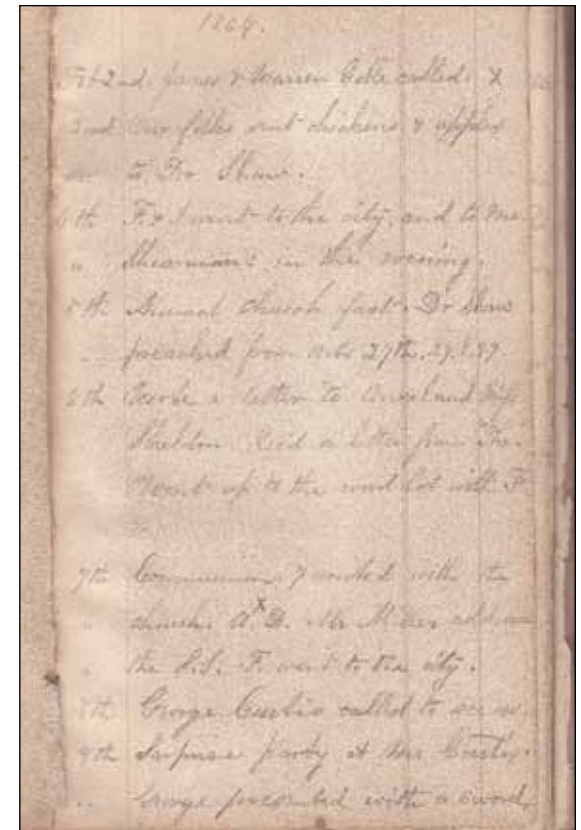 1864.
2nd. James & Warren Cobb called. X
2nd Our folks sent chickens & apples
to Dr Shaw.
4th F. & I went to the city, and to Mr.
" Shearman's in the evening.
5th Annual church fast. Dr Shaw
preached from Acts 27th,
6th Wrote a letter to and
a letter from
Went up to the wood lot with F
7th Communion. I united with the
" church. A. D. Mr Miller
" the S.S. F. went to the city.
8th George Curtis called to see us.
9th Surprise party at Mr Curtis.
" George presented with a sword,